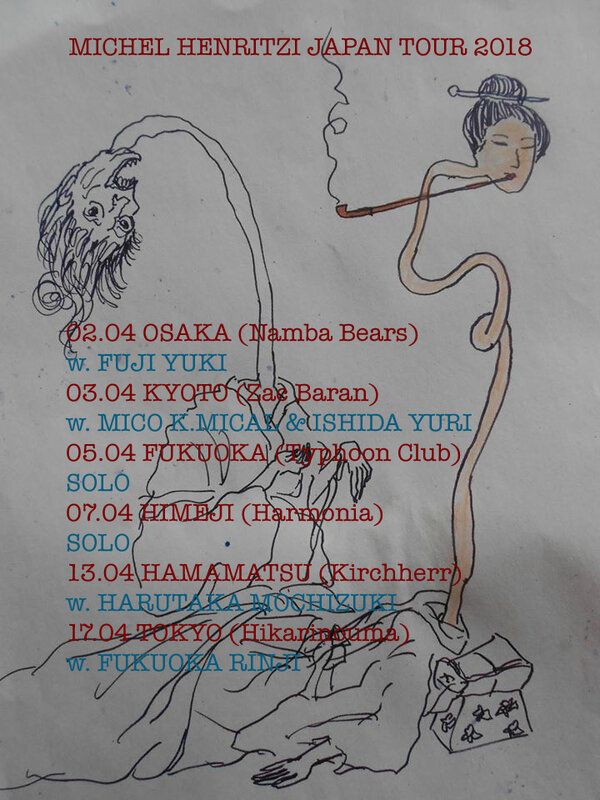 MICHEL HENRITZI JAPAN TOUR 2018
02.04 OSAKA (Namba Bears)
w. FUJI YUKI
03.04 KYOTO (Zac Baran)
w. MICO K.MICAL & ISHIDA YURI
05.04 FUKUOKA (Typhoon Club)
SOLO
07.04 HIMEJI (Harmonia)
SOLO
13.04 HAMAMATSU (Kirchherr)
w. HARUTAKA MOCHIZUKI
17.04 TOKYO (Hikarinouma)
w. FUKUOKA RINJI